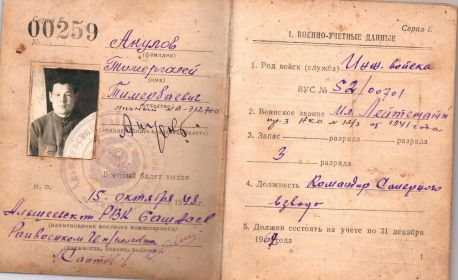 Серия Е
№ 00259
Акулов
(фамилия)
Тимергалей
(имя)
Тимербаевич
(отчество)
личный
Военный билет выдан
М. п.
15 октября 1948.
Альшеевским РВК Башасср
(наименование военного комиссариата)
Райвоенком
(должность, звание, подпись)
Серия Е
I. ВОЕННО-УЧЕТНЫЕ ДАННЫЕ
1. Род войск (служба) Инж. войска
ВУС № 52/00301
2. Воинское звание Мл. Лейтенант
от 1941 года
3. Запас разряда
3 разряда
4. Должность Командир Саперного
взвода
5. Должен состоять на учете по 31 декабря
1969 года